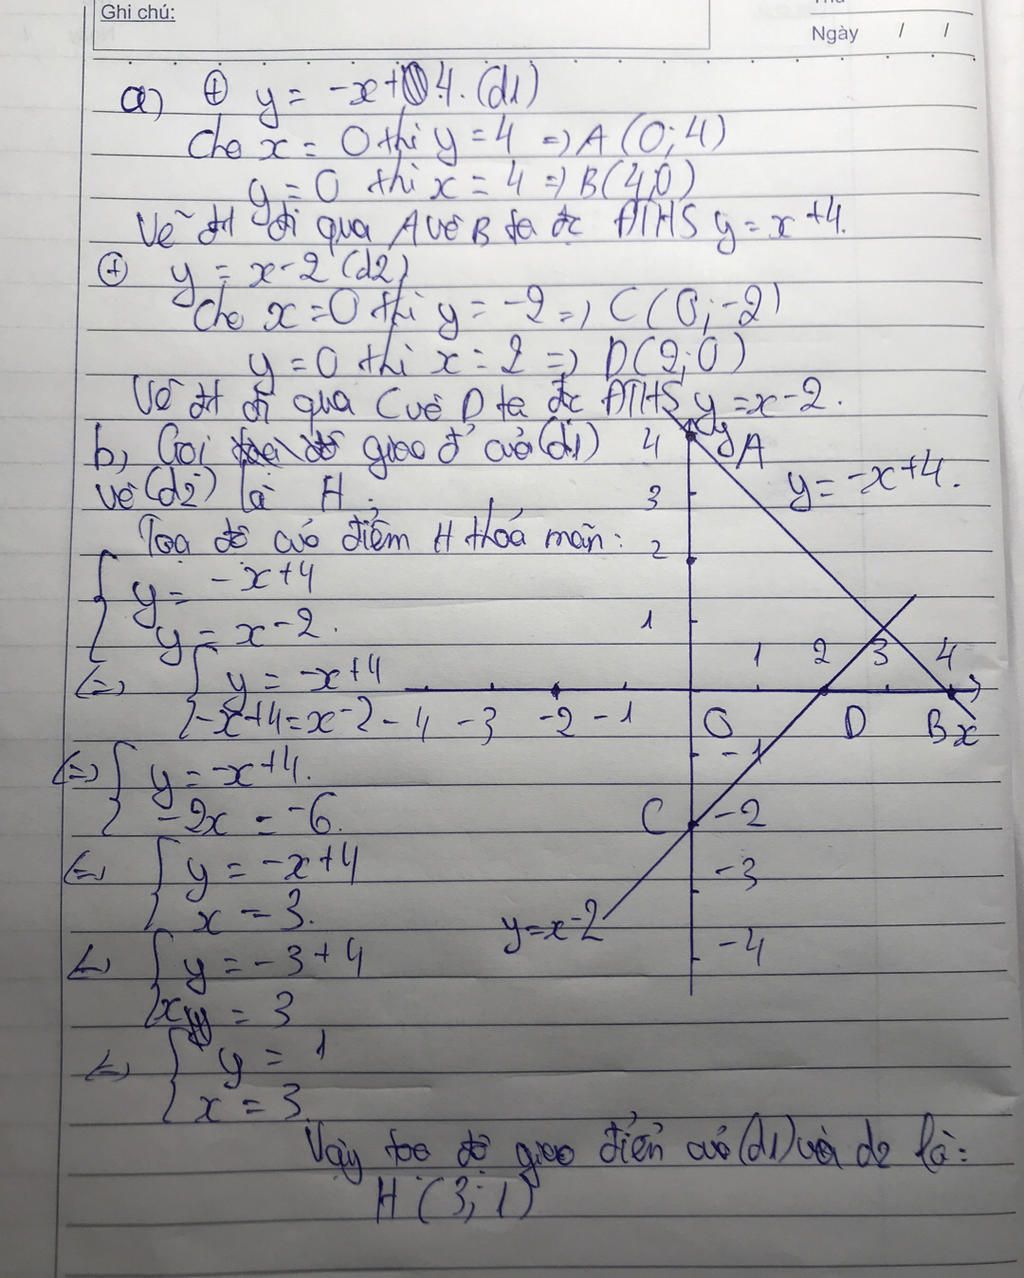 Ghi chú:
Thứ
Ngày / /
a) ⊕ y = -x+4. (d1)
Cho x = 0 thì y = 4 => A (0; 4)
y = 0 thì x = 4 => B(4;0)
Vẽ đt đi qua A và B ta đc ĐTHS y = x+4.
⊕ y = x-2 (d2)
Cho x = 0 thì y = -2 => C (0; -2)
y = 0 thì x = 2 => D(2; 0)
Vẽ đt đi qua C và D ta đc ĐTHS y = x-2.
b, Gọi toạ độ giao đ của (d1)
và (d2) là H.
Toạ độ của điểm H thoả mãn:
{ y = -x+4
y = x-2.
<=> { y = -x+4
-x+4 = x-2
<=> { y = -x+4.
-2x = -6.
<=> { y = -x+4
x = 3.
<=> { y = -3+4
x = 3
<=> { y = 1
x = 3.
Vậy toạ độ giao điểm của (d1) và d2 là:
H (3; 1)
4 y A
y = -x+4.
3
2
1
1 2 3 4
-4 -3 -2 -1 O D B x
-1
C -2
-3
y=x-2
-4